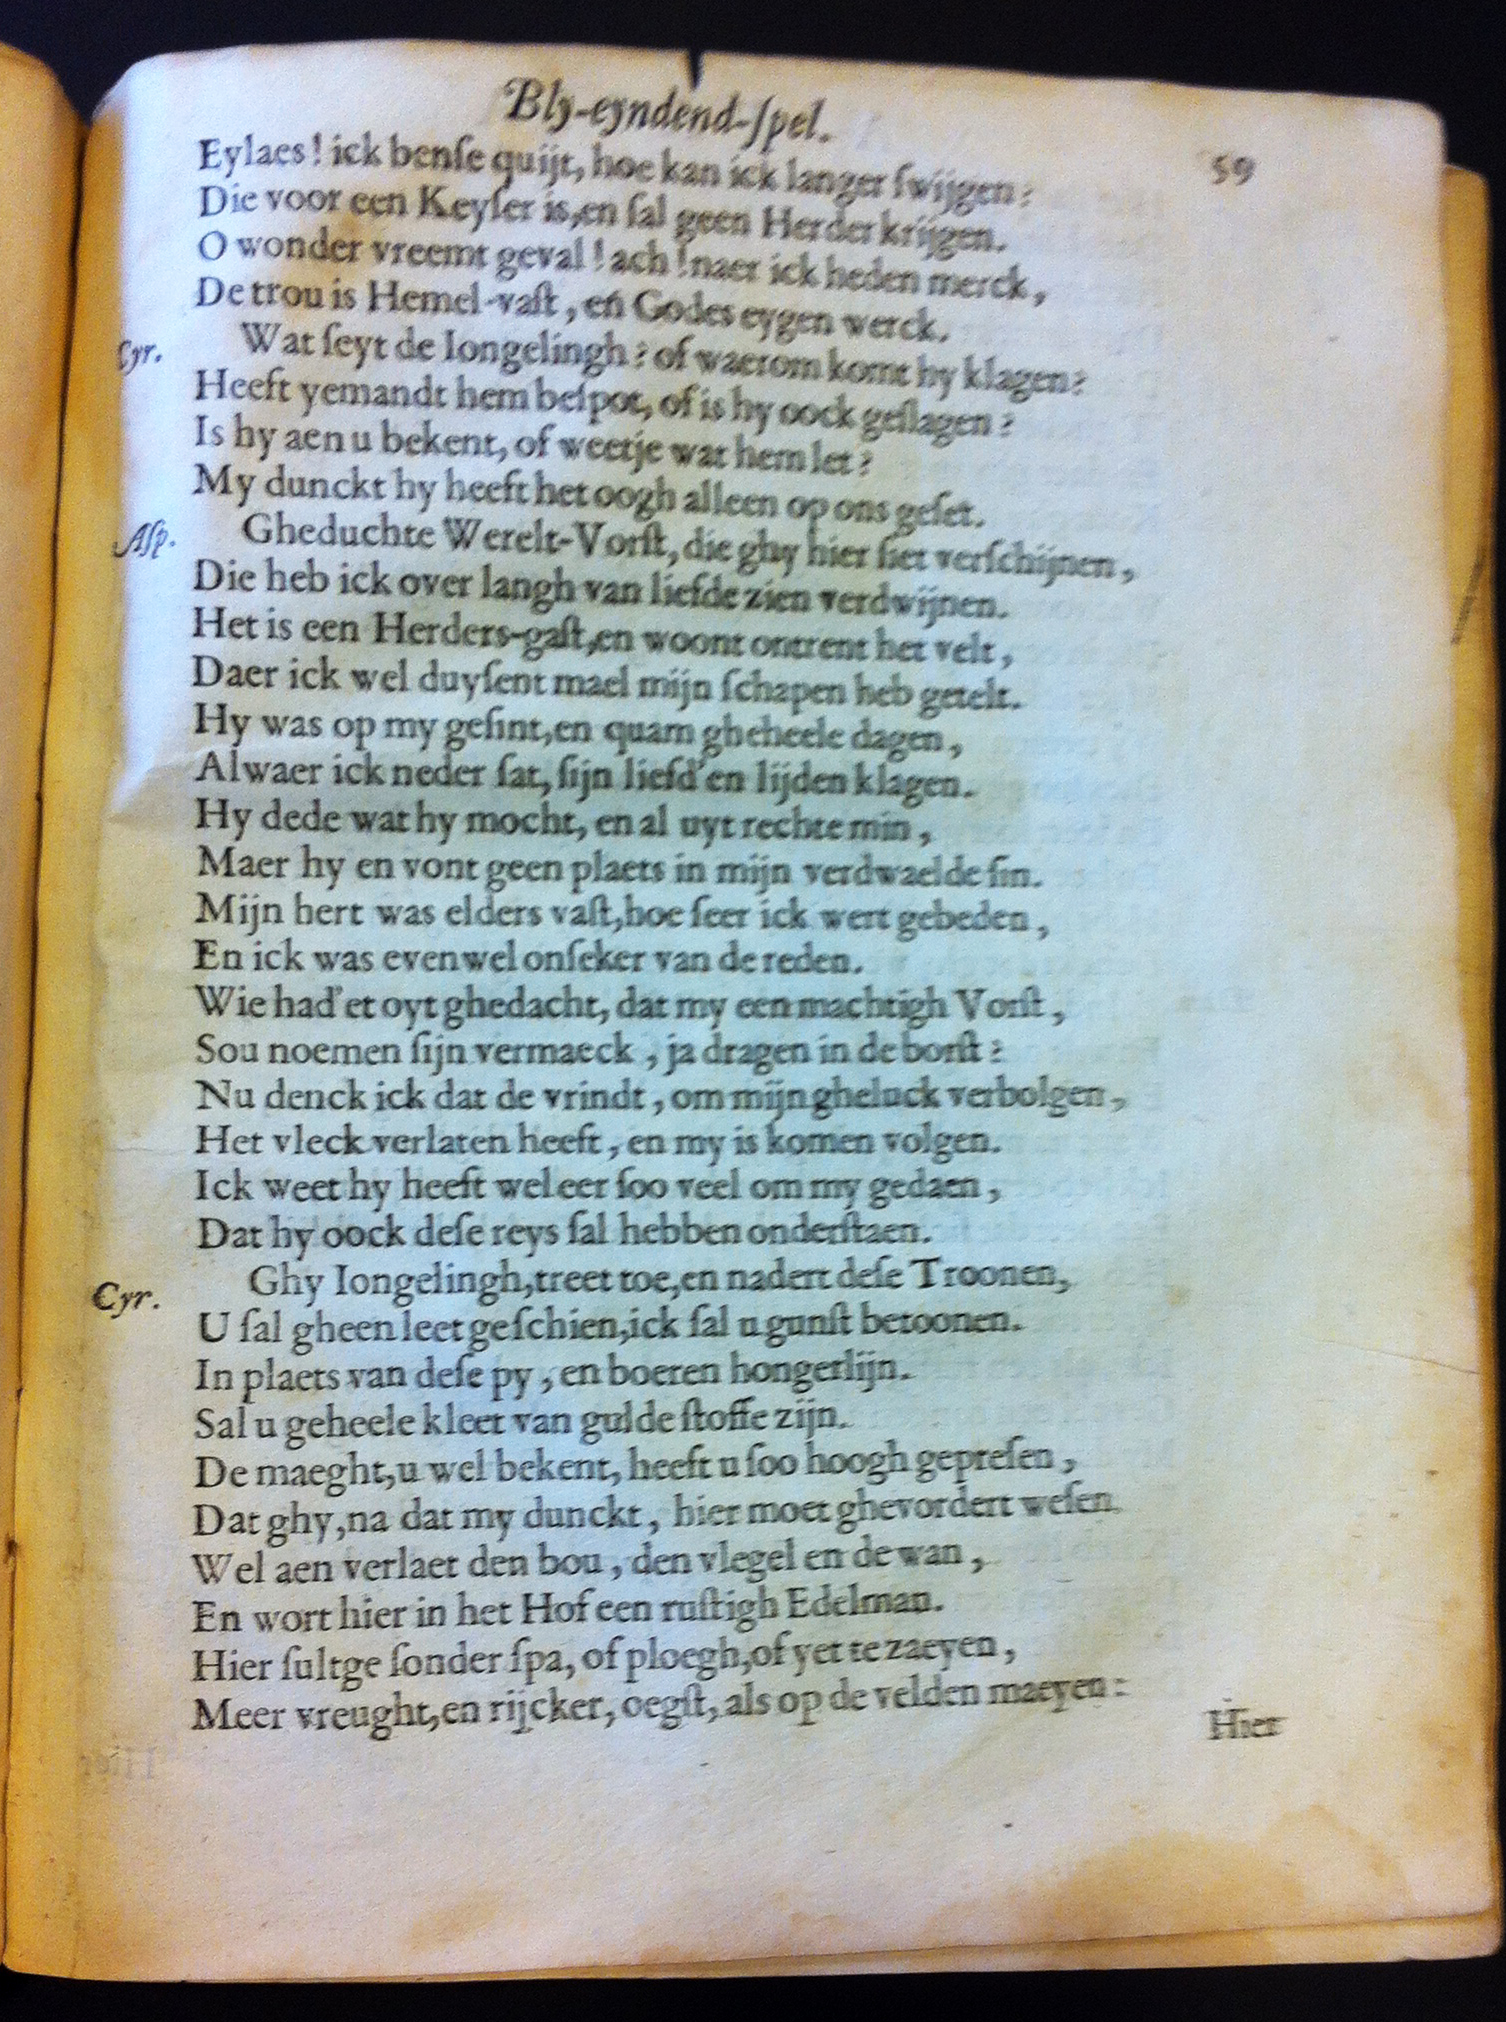 Bly-eyndend-ſpel.
59
Eylaes! ick benſe quijt, hoe kan ick langer ſwijgen?
Die voor een Keyſer is, en ſal geen Herder krijgen.
O wonder vreemt geval! ach! naer ick heden merck,
De trou is Hemel-vaſt, en̄ Godes eygen werck.
Cyr. Wat ſeyt de Iongelingh? of waerom komt hy klagen?
Heeft yemandt hem beſpot, of is hy oock geſlagen?
Is hy aen u bekent, of weetje wat hem let?
My dunckt hy heeft het oogh alleen op ons geſet.
Aſp. Gheduchte Werelt-Vorſt, die ghy hier ſiet verſchijnen,
Die heb ick over langh van liefde zien verdwijnen.
Het is een Herders-gaſt, en woont ontrent het velt,
Daer ick wel duyſent mael mijn ſchapen heb getelt.
Hy was op my geſint, en quam gheheele dagen,
Alwaer ick neder ſat, ſijn liefd' en lijden klagen.
Hy dede wat hy mocht, en al uyt rechte min,
Maer hy en vont geen plaets in mijn verdwaelde ſin.
Mijn hert was elders vaſt, hoe ſeer ick wert gebeden,
En ick was evenwel onſeker van de reden.
Wie had' et oyt ghedacht, dat my een machtigh Vorſt,
Sou noemen ſijn vermaeck, ja dragen in de borſt?
Nu denck ick dat de vrindt, om mijn gheluck verbolgen,
Het vleck verlaten heeft, en my is komen volgen.
Ick weet hy heeft wel eer ſoo veel om my gedaen,
Dat hy oock deſe reys ſal hebben onderſtaen.
Cyr. Ghy Iongelingh, treet toe, en nadert deſe Troonen,
U ſal gheen leet geſchien, ick ſal u gunſt betoonen.
In plaets van deſe py, en boeren hongerlijn.
Sal u geheele kleet van gulde ſtoffe zijn.
De maeght, u wel bekent, heeft u ſoo hoogh gepreſen,
Dat ghy, na dat my dunckt, hier moet ghevordert weſen.
Wel aen verlaet den bou, den vlegel en de wan,
En wort hier in het Hof een ruſtigh Edelman.
Hier ſultge ſonder ſpa, of ploegh, of yet te zaeyen,
Meer vreught, en rijcker, oegſt, als op de velden maeyen:
Hier